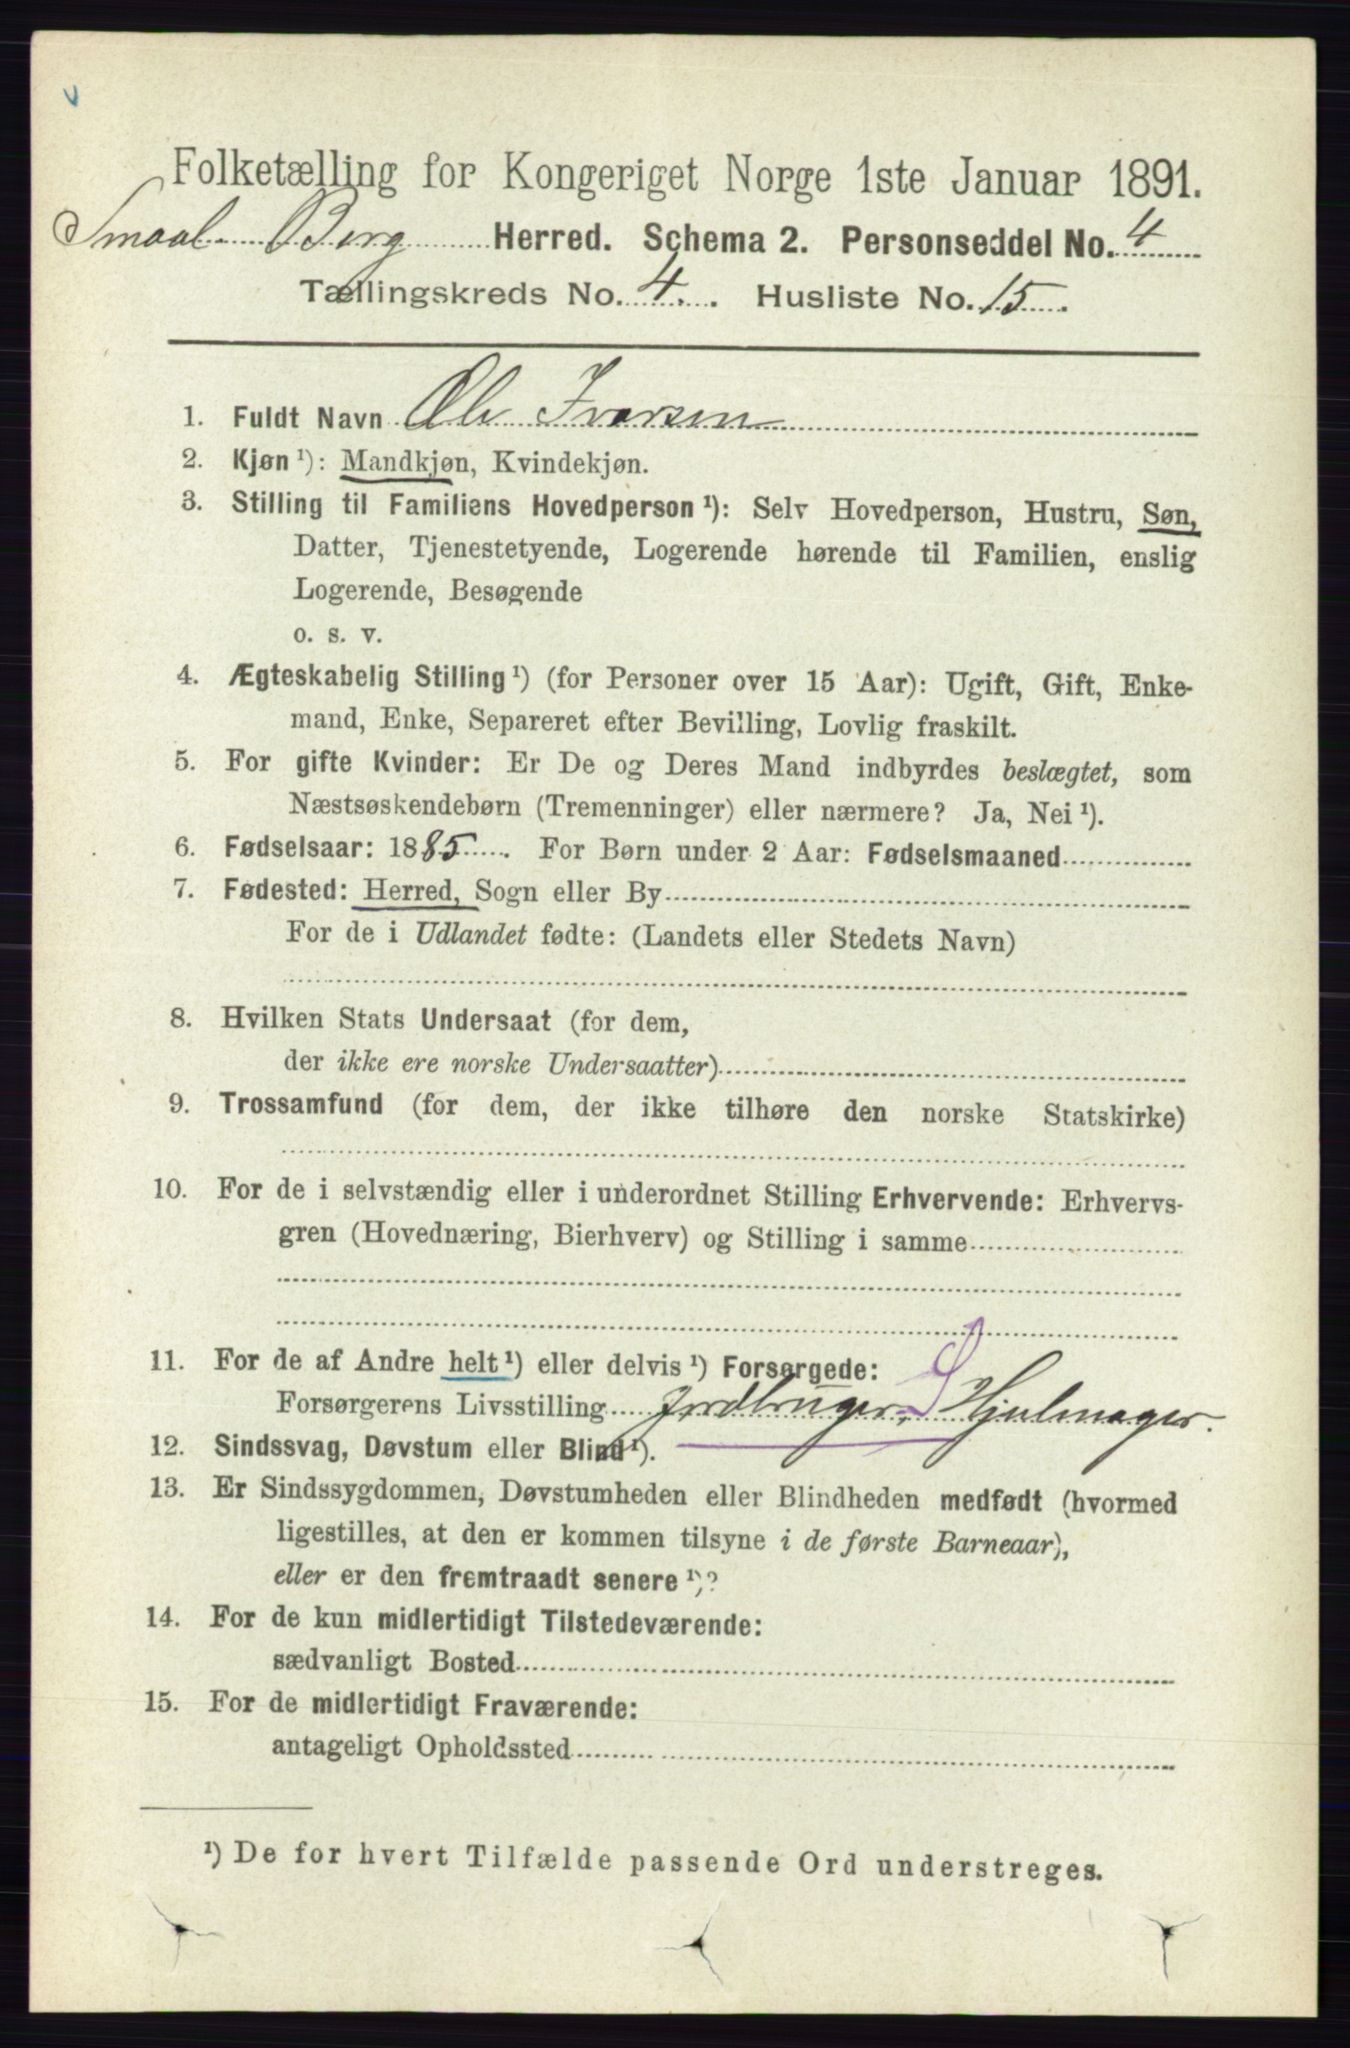 Folketælling for Kongeriget Norge 1ste Januar 1891.
Smaal. Berg Herred. Schema 2. Personseddel No. 4
Tællingskreds No. 4. Husliste No. 15.
1. Fuldt Navn Ole Ivarsen
2. Kjøn ¹): Mandkjøn, Kvindekjøn.
3. Stilling til Familiens Hovedperson ¹): Selv Hovedperson, Hustru, Søn,
Datter, Tjenestetyende, Logerende hørende til Familien, enslig
Logerende, Besøgende
o. s. v.
4. Ægteskabelig Stilling ¹) (for Personer over 15 Aar): Ugift, Gift, Enke-
mand, Enke, Separeret efter Bevilling, Lovlig fraskilt.
5. For gifte Kvinder: Er De og Deres Mand indbyrdes beslægtet, som
Næstsøskendebørn (Tremenninger) eller nærmere? Ja, Nei ¹).
6. Fødselsaar: 1885. For Børn under 2 Aar: Fødselsmaaned
7. Fødested: Herred, Sogn eller By
For de i Udlandet fødte: (Landets eller Stedets Navn)
8. Hvilken Stats Undersaat (for dem,
der ikke ere norske Undersaatter)
9. Trossamfund (for dem, der ikke tilhøre den norske Statskirke)
10. For de i selvstændig eller i underordnet Stilling Erhvervende: Erhvervs-
gren (Hovednæring, Bierhverv) og Stilling i samme
11. For de af Andre helt ¹) eller delvis ¹) Forsørgede:
Forsørgerens Livsstilling Jordbruger, Hjulmager.
12. Sindssvag, Døvstum eller Blind ¹).
13. Er Sindssygdommen, Døvstumheden eller Blindheden medfødt (hvormed
ligestilles, at den er kommen tilsyne i de første Barneaar),
eller er den fremtraadt senere ¹)?
14. For de kun midlertidigt Tilstedeværende:
sædvanligt Bosted
15. For de midlertidigt Fraværende:
antageligt Opholdssted
¹) De for hvert Tilfælde passende Ord understreges.